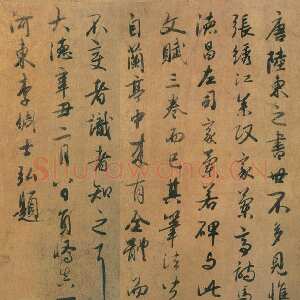 唐陸柬之書世不多見惟
張繡江參政家蘭亭詩馮
德昌左司家蘭若碑與此
文賦三卷而已其筆法皆
自蘭亭中來有全體而
不變者識者知之耳
大德辛丑二月八日員嶠真
河東李倜士弘題